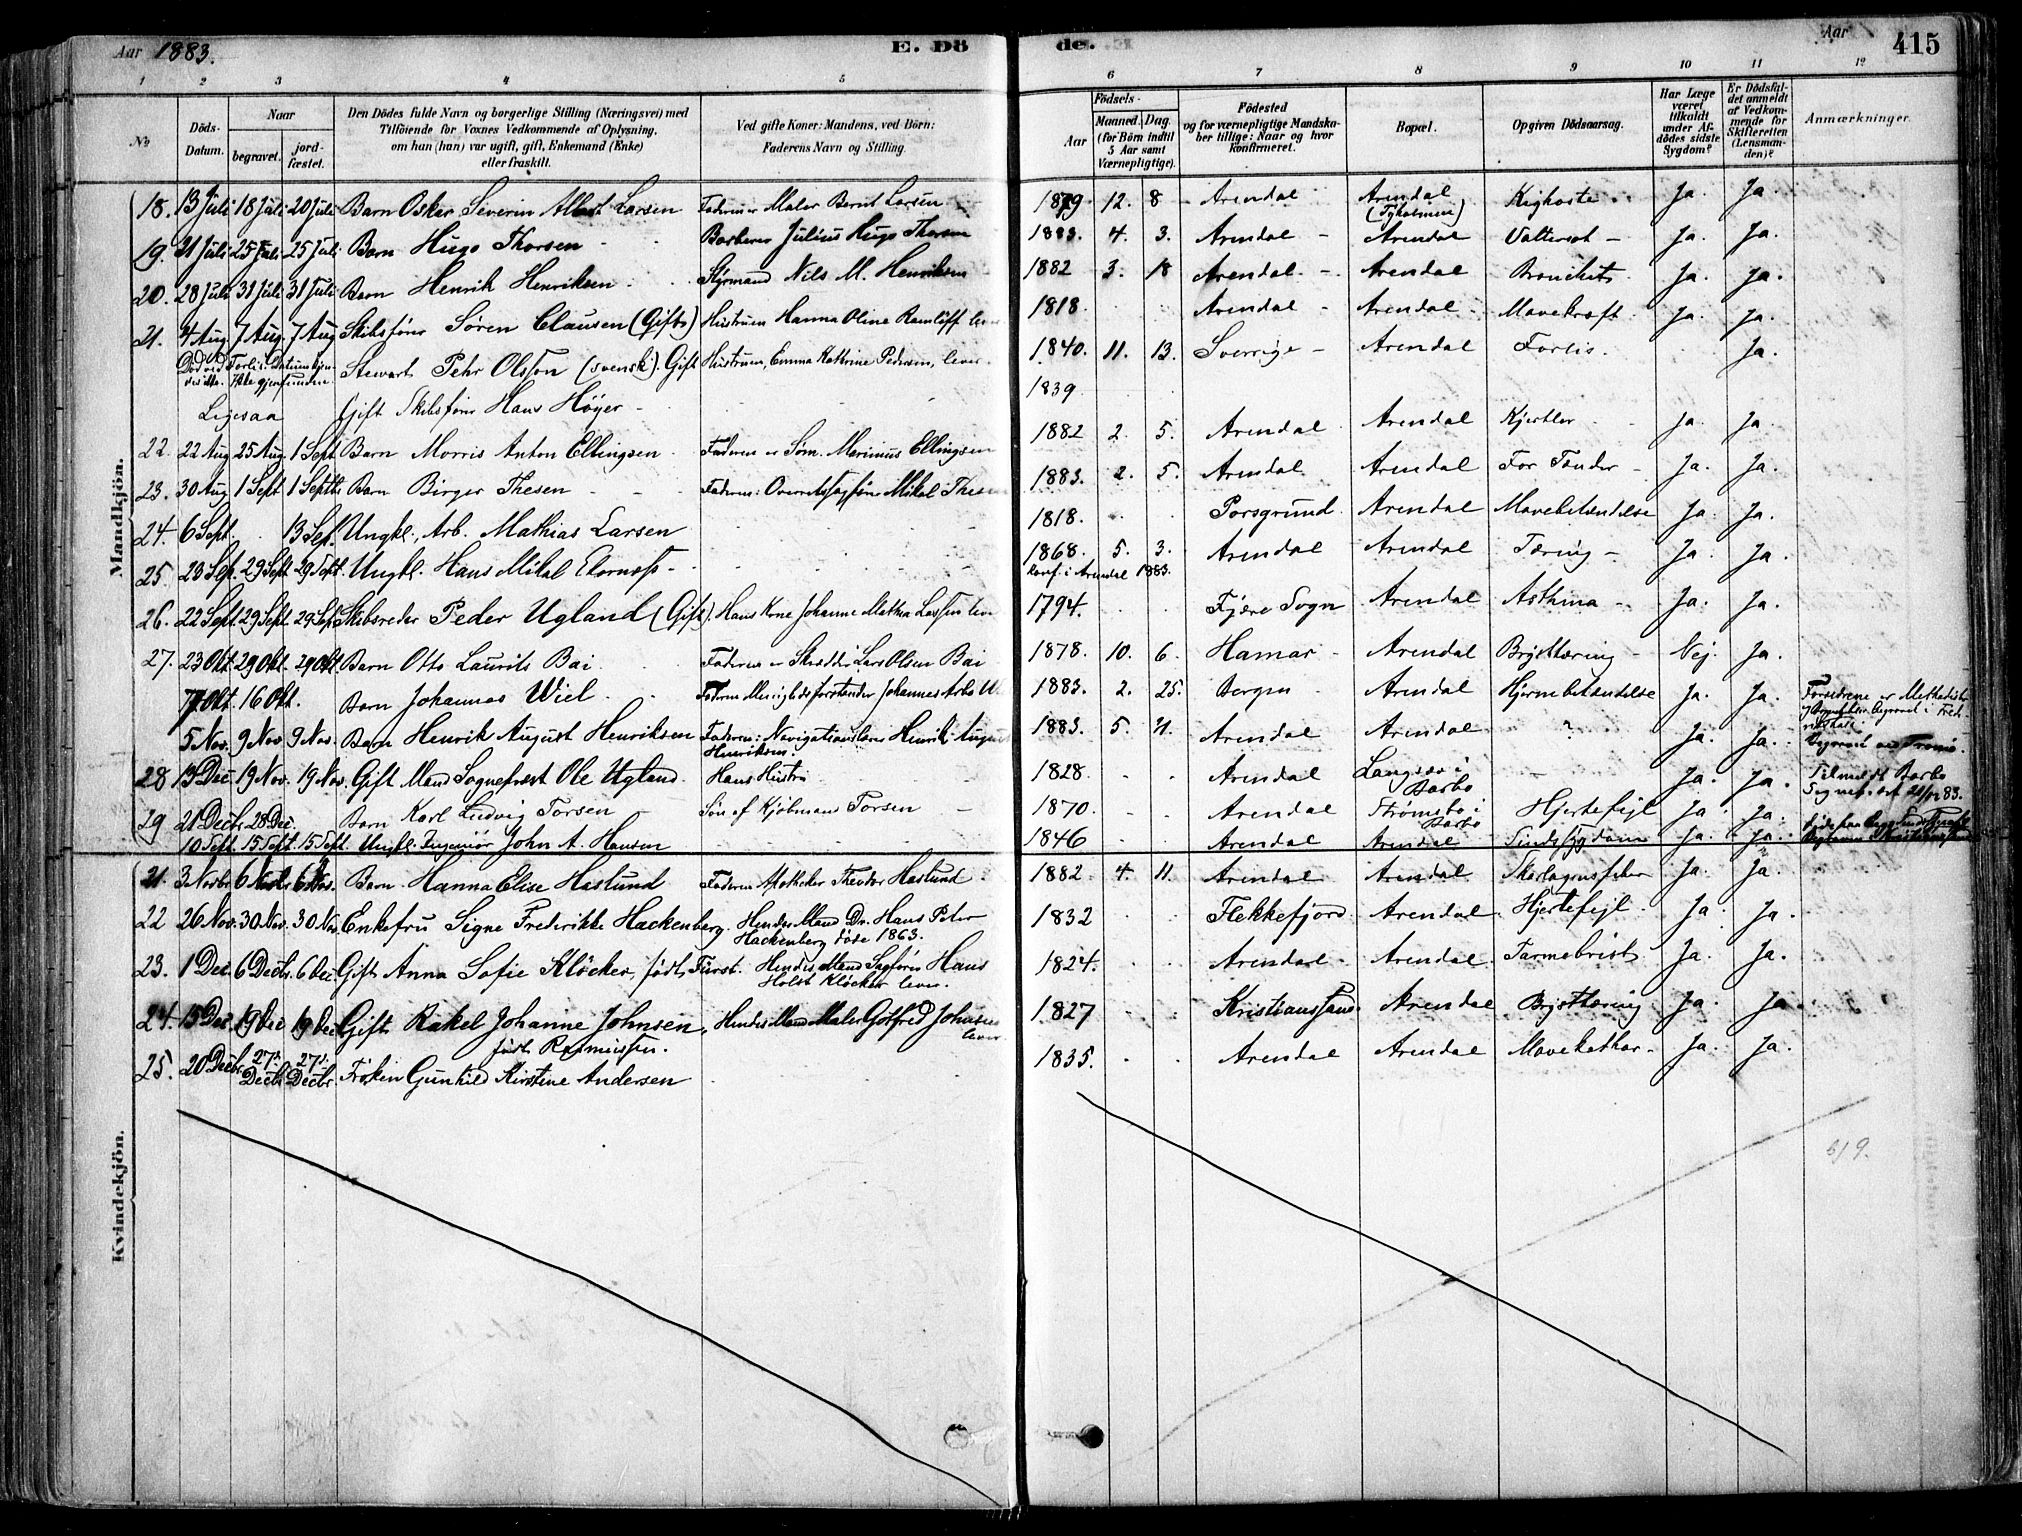 Aar 1883. E. Dö de. Aar 415
1 2 3 4 5 6 7 8 9 10 11 12
№ Döds-Datum. Naar begravet. jordfæstet. Den Dödes fulde Navn og borgerlige Stilling (Næringsvei) med Tilföiende for Voxnes Vedkommende af Oplysning, om han (hun) var ugift, gift, Enkemand (Enke) eller fraskilt. Ved gifte Koner: Mandens, ved Börn: Faderens Navn og Stilling. Födsels- Aar Maaned. Dag. (for Börn indtil 5 Aar samt Værnepligtige). Födested og for værnepligtige Mandskaber tillige: Naar og hvor konfirmeret. Bopæl. Opgiven Dödsaarsag. Har Læge været tilkaldt under Afdödes sidste Sygdom? Er Dödsfaldet anmeldt af Vedkommende for Skifteretten (Lensmanden)? Anmærkninger.
Mandkjön.
18. 13 Juli 18 Juli 20 Juli Barn Oskar Severin Albert Larsen Faderen er Maler Bernt Larsen 1879 12. 8 Arendal Arendal (Tyholmen) Kighoste Ja. Ja.
19. 21 Juli 25 Juli 25 Juli Barn Hugo Thorsen Barberer Julius Hugo Thorsen 1883. 4. 3. Arendal Arendal Vattersot Ja. Ja.
20. 28 Juli 31 Juli 31 Juli Barn Henrik Henriksen Styrmand Nils M. Henriksen 1882 3. 18 Arendal Arendal Bronchit Ja. Ja.
21. 4 Aug 7 Aug. 7 Aug Skibsfører Søren Clausen (Gift) Hustruen Hanna Oline 1818. Arendal Arendal Mavekræft Ja. Ja.
Død ved Forlis. Datum kjendes ikke. Ikke gjenfunden. Stewart Pehr Olsson (svensk). Gift Hustruen, Emma Kathrine Pedersen, lever 1840. 11. 13. Sverrige Arendal Forlis. Ja.
Ligesaa Gift Skibsfører Hans Höyer 1839
22. 22 Aug 25 Aug. 1 Sept Barn Morris Anton Ellingsen Faderen er Søm. Merinius Ellingsen 1882 2. 5. Arendal Arendal Kjertler Ja. Ja.
23. 30 Aug 1 Sept 1 Septb. Barn Birger Thesen Faderen: Overretssagfører Mikal Thesen 1883. 2. 5. Arendal Arendal For Tænder Ja. Ja.
24. 6 Sept. 13 Sep. Ungkl., Arb. Mathias Larsen 1818. Porsgrund Arendal Mavebetændelse Ja. Ja.
25 23 Sep. 29 Sept 29 Sept. Ungkl. Hans Mikal 1868. 5. 3. Konf. i Arendal 1883. Arendal Arendal Tæring Ja. Ja.
26. 22 Sept. 29 Sept. 29 Sept Skibsreder Peder Ugland (Gift). Hans Kone Johanne Mathea 1794. Fjære Sogn Arendal Asthma Ja. Ja.
27. 23 Okt. 29 Okt. 29 Okt. Barn Otto Laurits Bai Faderen er Skrædder Lars Olsen Bai 1878. 10. 6. Hamar Arendal Brysttæring Nej. Ja.
7 Okt. 16 Okt. Barn Johannes Wiel Faderen Menighedsforstander Johannes 1883. 2. 25. Bergen Arendal Hjernebetændelse Ja. Ja. Forældrene er Methodister begravet i
5 Nov. 9 Nov 9 Nov. Barn Henrik August Henriksen Faderen: Navigationslærer Henrik August Henriksen 1883. 5. Arendal Arendal ? Ja. Ja. Begravet paa Tromø.
28 13 Dec 19 Nov. 19 Nov. Gift Mand Ole Ugland Hans Hustru 1828 Arendal Langsæ i Barbo Ja. Ja. Tilmeldt Barbo
29 21 Decbr 28 Dec. Barn Karl Ludvig Torsen Søn af Kjøbmand Torsen 1870. Arendal Strømsbo i Barbo Hjertefejl Ja. Ja.
10 Sept. 15 Sept. 15 Sept. Ungkl. Ingeniør John A. Hansen 1846 Arendal Arendal Sindssygdom Ja. Ja.
Kvindekjön.
21. 3 Novbr 6 Novbr 6 Nov. Barn Hanna Elise Haslund Faderen Apotheker Theodor Haslund 1882. 4. 11. Arendal Arendal Skarlagensfeber Ja. Ja.
22 26 Nov. 30 Nov. 30 Nov. Enkefru Signe Frederikke Hackenberg. Hendes Mand Dr. Hans Peter Hackenberg døde 1863. 1832 Flekkefjord Arendal Hjertefejl Ja. Ja.
23. 1 Dec. 6 Decbr. 6 Dec Gift Anna Sofie Klöcker, født Fürst. Hendes Mand Sagfører Hans Holst Klöcker lever. 1824. Arendal Arendal Tarmebrist Ja. Ja.
24. 15 Dec 19 Dec 19 Dec Gift Rakel Johanne Johnsen, født Rasmussen. Hendes Mand Maler Gotfred Johnsen lever 1827 Kristianssand Arendal Brysttæring Ja. Ja.
25. 20 Decbr 27de Decbr 27de Decbr. Frøken Gunhild Kirstine Andersen 1835. Arendal Arendal Mavekathar Ja. Ja.